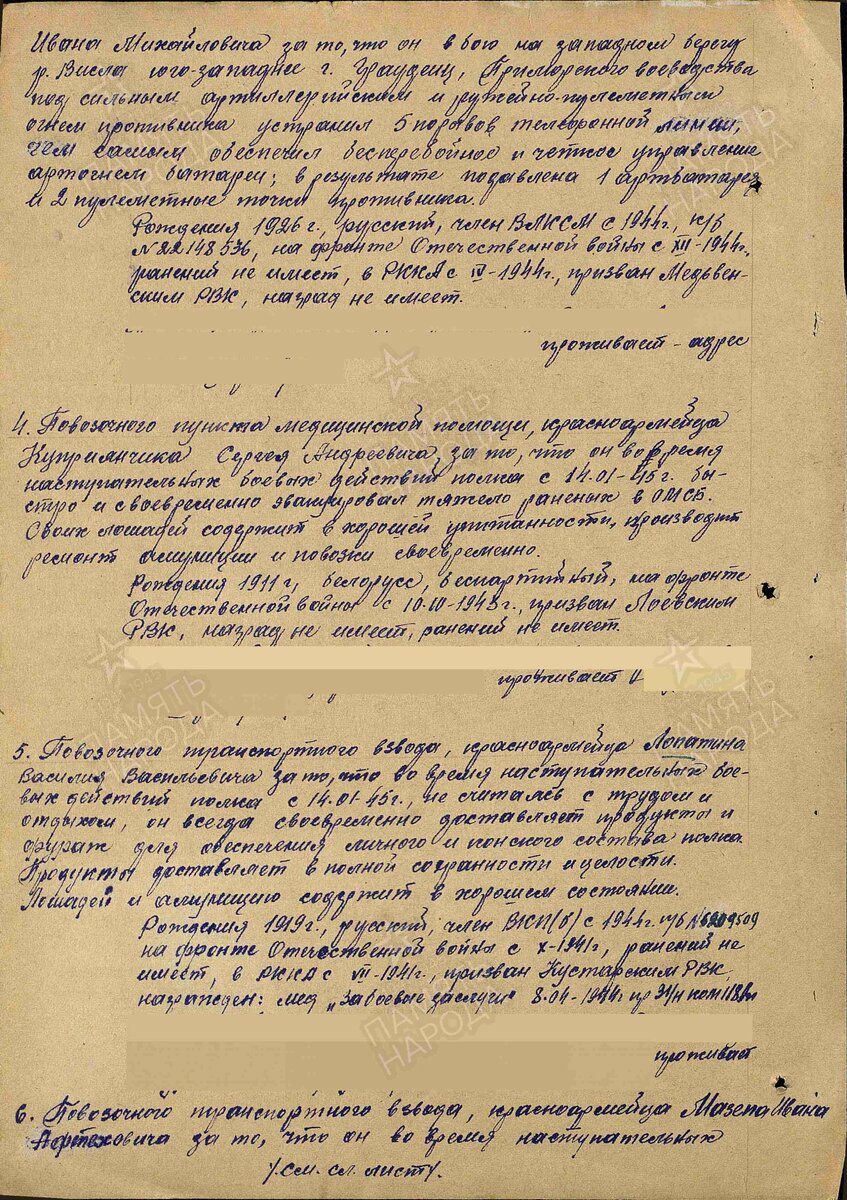 Ивана Михайловича за то, что он в бою на западном берегу
р. Висла юго-западнее г. Грауденц, Приморского воеводства
под сильным артиллерийским и ружейно-пулеметным
огнем противника устранил 5 порывов телефонной линии,
чем самым обеспечил бесперебойное и четкое управление
артогнем батареи; в результате подавлена 1 артбатарея
и 2 пулеметные точки противника.
Рождения 1926 г., русский, член ВЛКСМ с 1944г., к/б
№22148536, на фронте Отечественной войны с XII-1944г.,
ранений не имеет, в РККА с IV-1944г., призван Медвен-
ским РВК, наград не имеет.
проживает - адрес
4. Повозочного пункта медицинской помощи, красноармейца
Куприянчика Сергея Андреевича, за то, что он во время
наступательных боевых действий полка с 14.01-45г. бы-
стро и своевременно эвакуировал тяжело раненых в ОМСБ.
Своих лошадей содержит в хорошей упитанности, производит
ремонт амуниции и повозки своевременно.
Рождения 1911 г., белорусс, беспартийный, на фронте
Отечественной войны с 10-1943г., призван Лоевским
РВК, наград не имеет, ранений не имеет.
проживает
5. Повозочного транспортного взвода, красноармейца Лопатина
Василия Васильевича за то, что во время наступательных бое-
вых действий полка с 14.01-45г., не считаясь с трудом и
отдыхом, он всегда своевременно доставляет продукты и
фураж для обеспечения личного и конского состава полка.
Продукты доставляет в полной сохранности и целости.
Лошадей и амуницию содержит в хорошем состоянии.
Рождения 1919г., русский, член ВКП(б) с 1944г. п/б №6209509
на фронте Отечественной войны с X-1941г., ранений не
имеет, в РККА с VII-1941г., призван Кустарским РВК,
награжден: мед „За боевые заслуги" 8.04-1944г пр 34/н ком 118
проживает
6. Повозочного транспортного взвода, красноармейца Мазепа Ивана
за то, что он во время наступательных
/.см. сл. лист/.
ПАМЯТЬ
НАРОДА